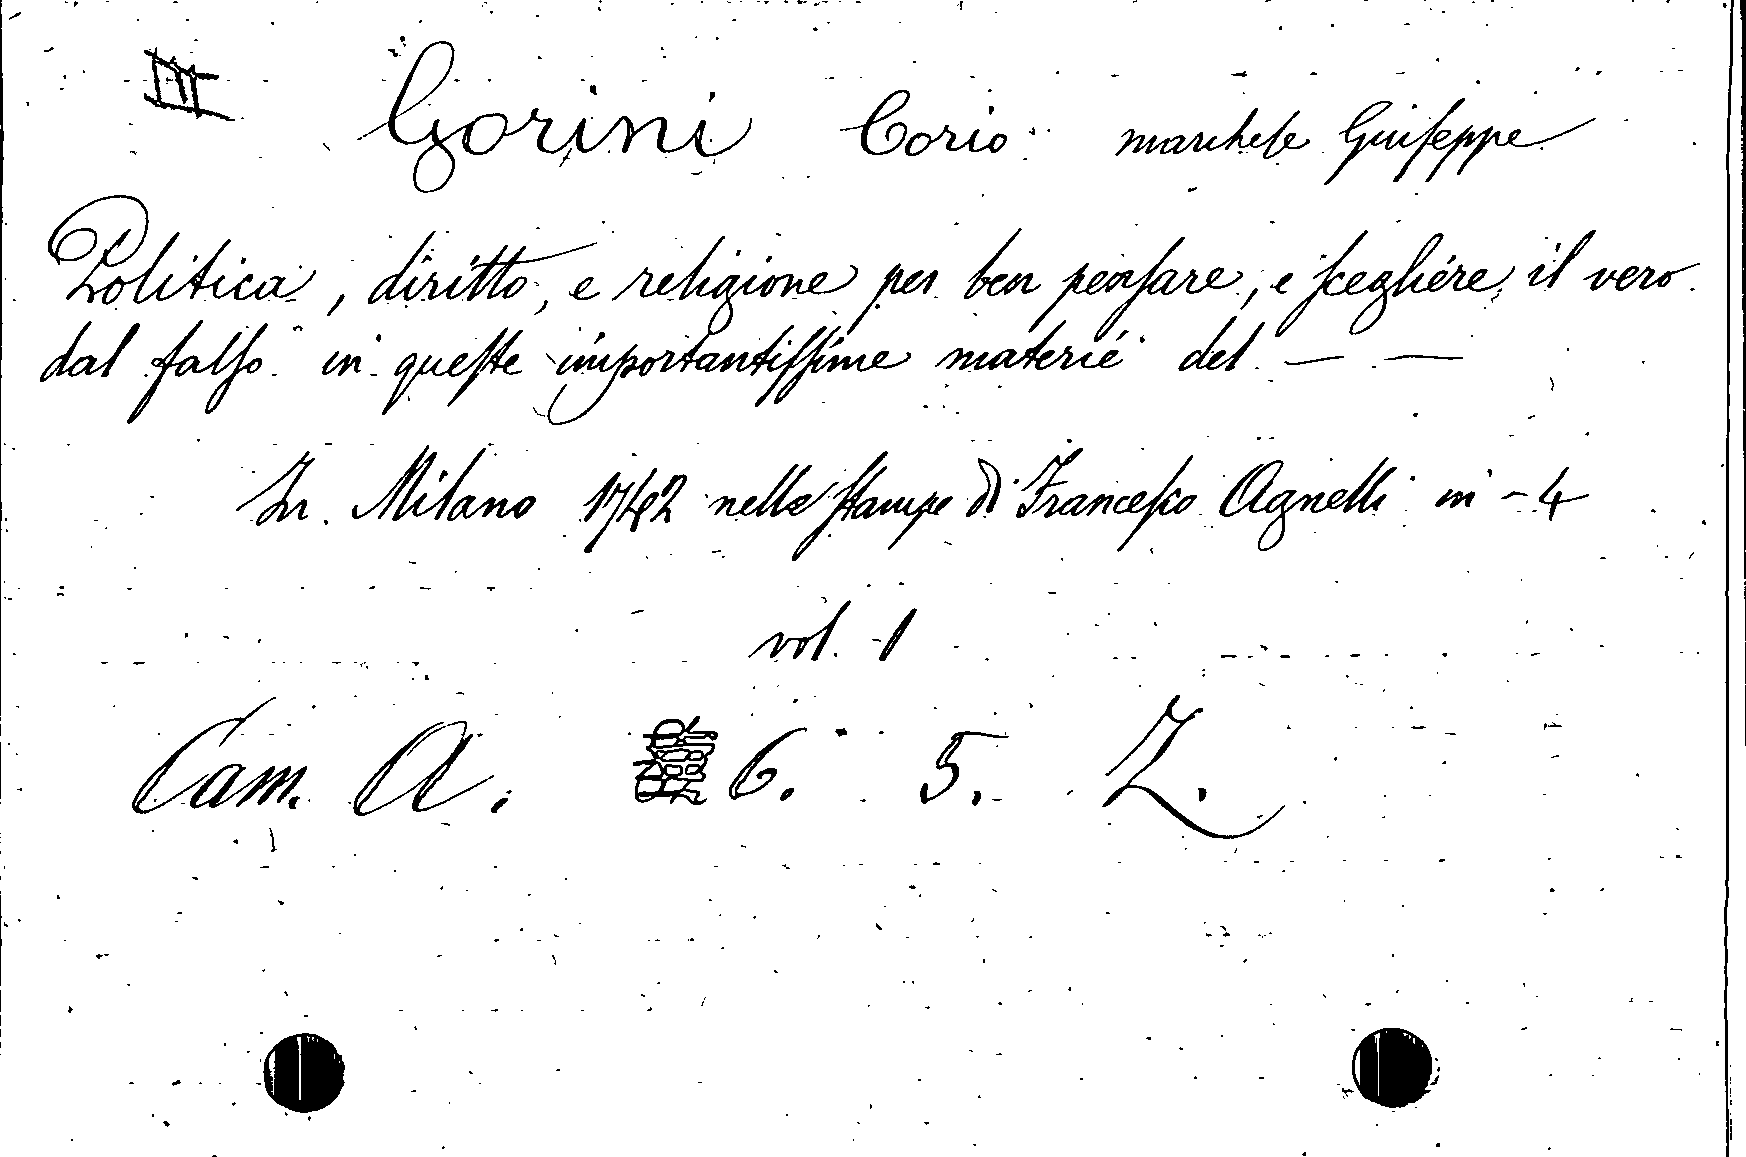 III Gorini Corio marchese Giuseppe
Politica, diritto, e religione per ben penſare, e ſcegliére il vero
dal falſo in queſte importantiſſime materie del — —
In Milano 1742 nelle ſtampe di Franceſco Agnelli in-4
vol. 1
Cam. A. 6. 5. Z.